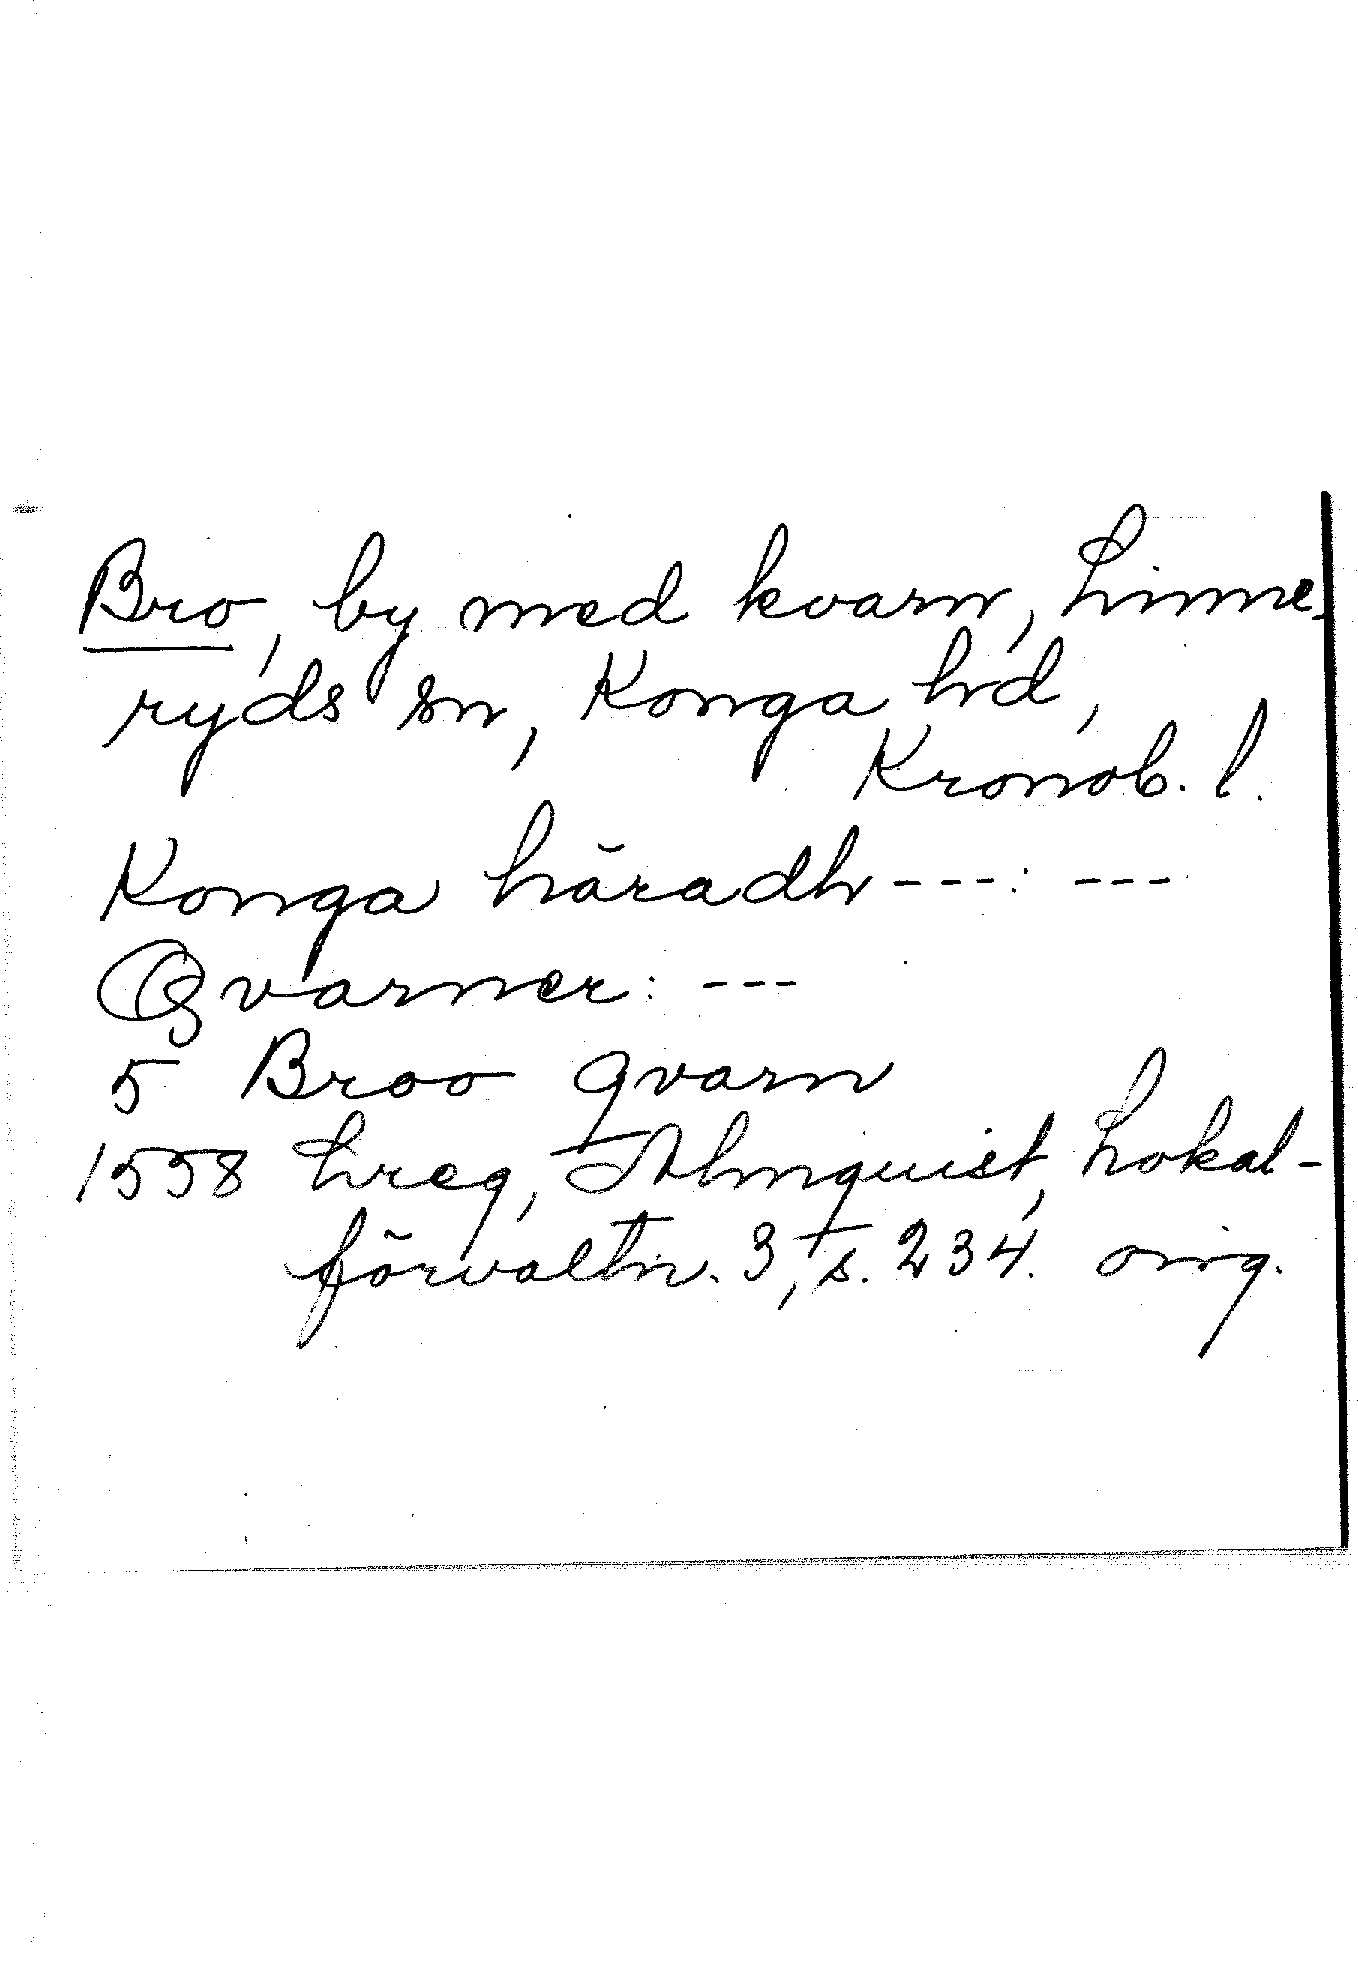 Bro, by med kvarn, Linne-
ryds sn, Konga hd,
Kronob. l.
Konga häradh ---: ---
Qvarner: ---
5 Broo qvarn
1558 Lreg, Almquist, Lokal-
förvaltn. 3, s. 234. orig.